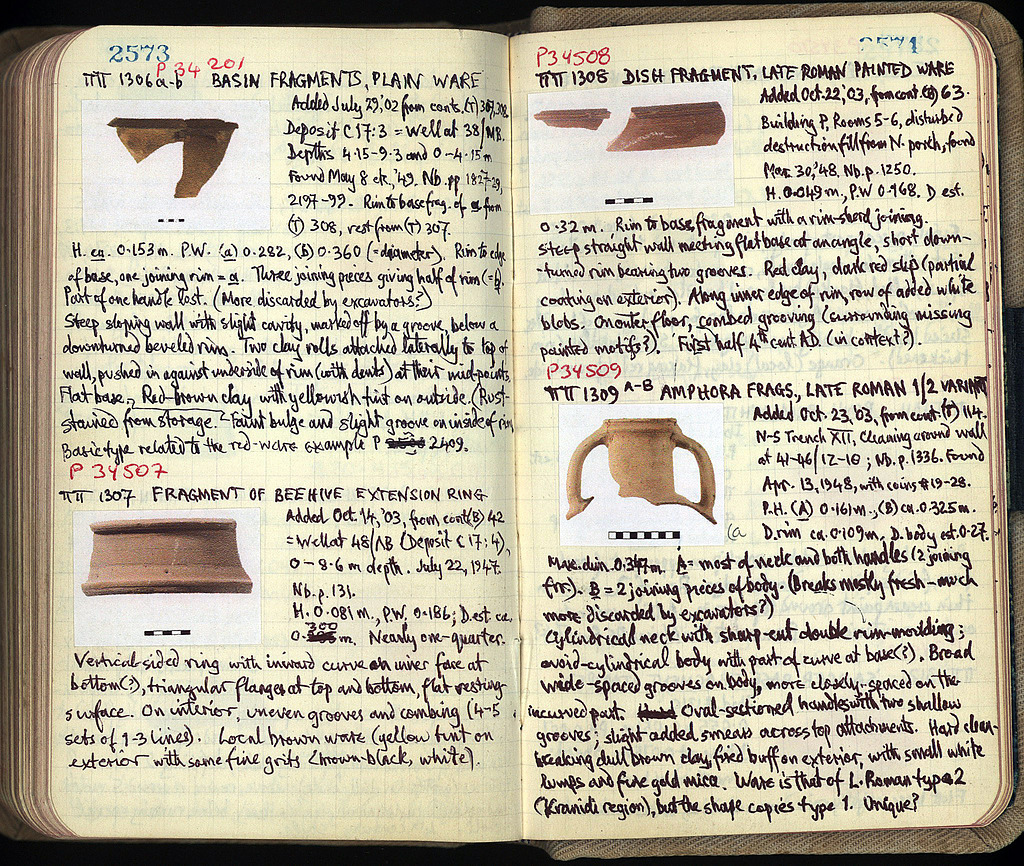 2573
P 34 201
ΠΠ 1306a-b BASIN FRAGMENTS, PLAIN WARE
Added July 29,'02 from conts. (T) 307, 308.
Deposit C 17:3 = Well at 38/MB.
Depths 4.15-9.3 and 0-4.15m
Found May 8 etc.,'49. Nb. pp. 1827-29,
2197-99. Rim to base frag. of a from
(T) 308, rest from (T) 307.
H. ca. 0.153m. P.W. (a) 0.282, (b) 0.360 (=diameter). Rim to edge
of base, one joining rim = a. Three joining pieces giving half of rim (=b).
Part of one handle lost. (More discarded by excavators?)
Steep sloping wall with slight cavity, marked off by a groove, below a
downturned beveled rim. Two clay rolls attached laterally to top of
wall, pushed in against underside of rim (with dents) at their mid-points.
Flat base. Red-brown clay with yellowish tint on outside. (Rust-
stained from storage. Faint bulge and slight groove on inside of rim
Basic type related to the red-ware example P 2409.
P 34507
ΠΠ 1307 FRAGMENT OF BEEHIVE EXTENSION RING
Added Oct. 14,'03, from cont. (B) 42
= Well at 48/ΛB (Deposit C 17:4),
0-8.6 m depth. July 22, 1947.
Nb. p. 131.
H. 0.081 m., P.W. 0.186; D. est. ca.
0.300 m. Nearly one-quarter.
Vertical-sided ring with inward curve on inner face at
bottom(?), triangular flanges at top and bottom, flat resting
surface. On interior, uneven grooves and combing (4-5
sets of 1-3 lines). Local brown ware (yellow tint on
exterior with some fine grits (brown-black, white).
P34508
ΠΠ 1308 DISH FRAGMENT, LATE ROMAN PAINTED WARE
Added Oct. 22,'03, from cont. (B) 63.
Building P, Rooms 5-6, disturbed
destruction fill from N. porch, found
Mar. 30,'48. Nb. p. 1250.
H. 0.049 m., P.W. 0.168. D est.
0.32 m. Rim to base fragment with a rim-sherd joining.
Steep straight wall meeting flat base at an angle, short down-
-turned rim bearing two grooves. Red clay, dark red slip (partial
coating on exterior). Along inner edge of rim, row of added white
blots. On outer floor, combed grooving (surrounding missing
painted motifs?). First half 4th cent. AD. (in context?).
P34509
ΠΠ 1309 A-B AMPHORA FRAGS., LATE ROMAN 1/2 VARIANT
Added Oct. 23,'03, from cont. (T) 114.
N-S Trench XII, Cleaning around wall
at 41-46/12-18; Nb. p. 1336. Found
Apr. 13, 1948, with coins #19-28.
P.H. (A) 0.161 m., (B) ca. 0.325m.
(a D. rim ca. 0.109m, D. body est. 0.27.
Max. dim. 0.347m. A = most of neck and both handles (2 joining
frr.). B = 2 joining pieces of body. (Breaks mostly fresh - much
more discarded by excavators?)
Cylindrical neck with sharp-cut double rim-moulding;
ovoid-cylindrical body with part of curve at base(?). Broad
wide-spaced grooves on body, more closely-spaced on the
incurved part. Oval-sectioned handles with two shallow
grooves; slight added smears across top attachments. Hard clean-
breaking dull brown clay, fired buff on exterior, with small white
lumps and fine gold mica. Ware is that of L. Roman type 2
(Kranidi region), but the shape copies type 1. Unique?